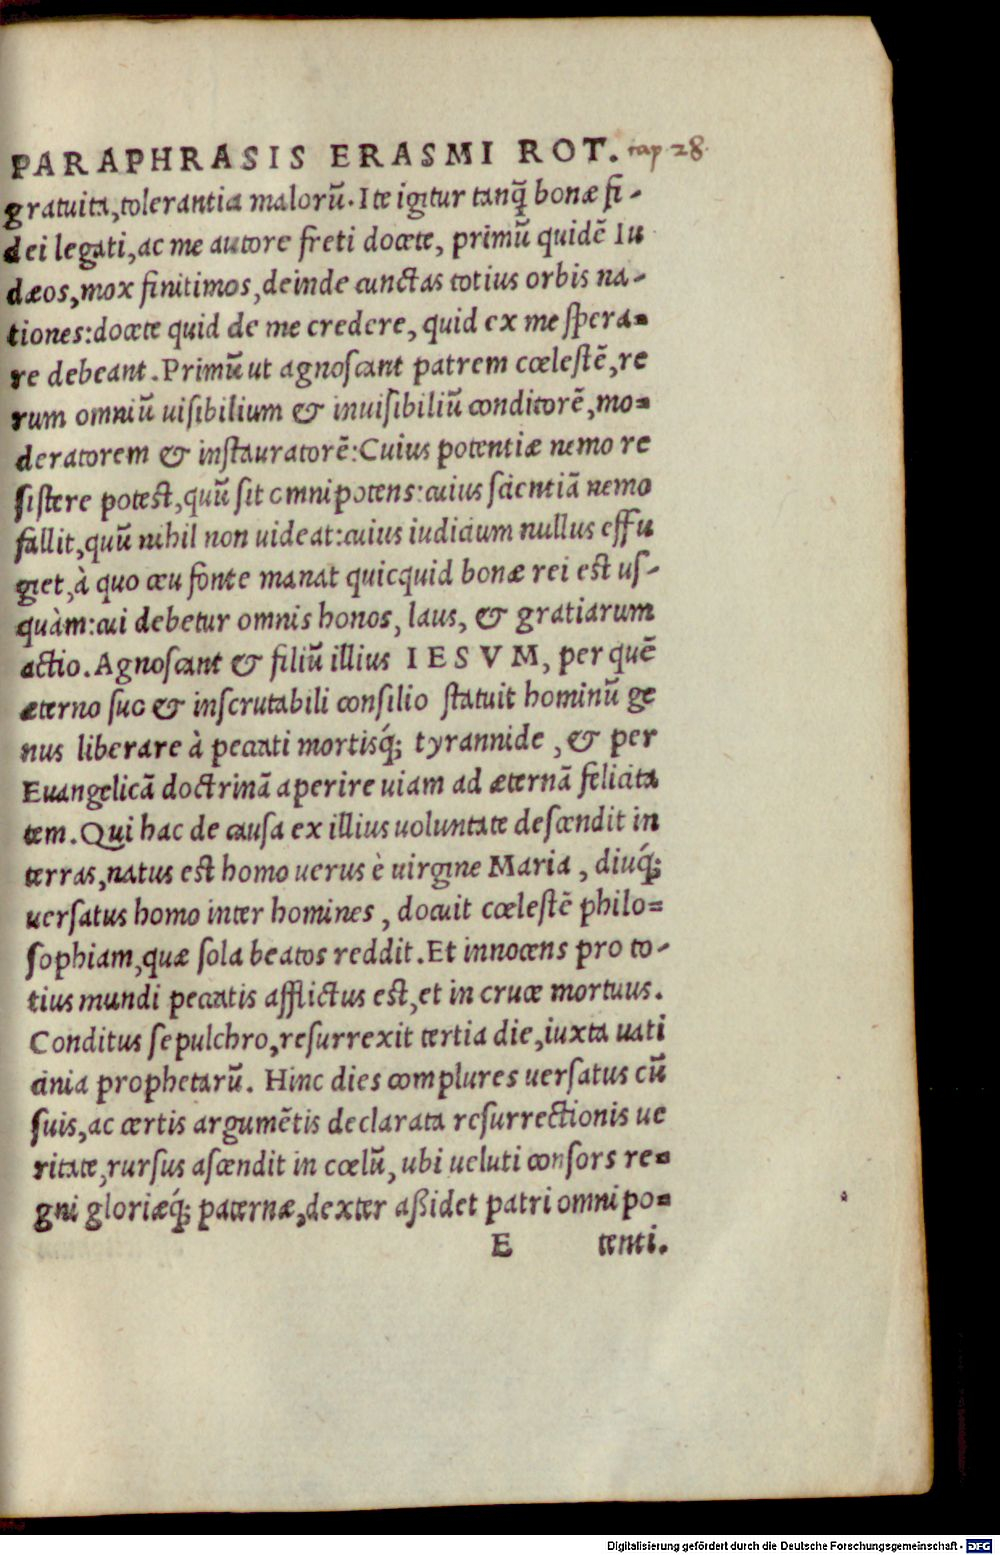 PARAPHRASIS ERASMI ROT. cap 28.
gratuita, tolerantia malorũ. Ite igitur tanq̃ bonæ fi-
dei legati, ac me autore freti docete, primũ quidẽ Iu
dæos, mox finitimos, deinde cunctas totius orbis na-
tiones: docete quid de me credere, quid ex me spera=
re debeant. Primũ ut agnoscant patrem cœlestẽ, re
rum omniũ uisibilium & inuisibiliũ conditorẽ, mo=
deratorem & instauratorẽ: Cuius potentiæ nemo re
sistere potest, quũ sit omnipotens: cuius scientiã nemo
fallit, quũ nihil non uideat: cuius iudicium nullus effu
giet, à quo ceu fonte manat quicquid bonæ rei est us-
quàm: cui debetur omnis honos, laus, & gratiarum
actio. Agnoscant & filiũ illius IESVM, per quẽ
æterno suo & inscrutabili consilio statuit hominũ ge
nus liberare à peccati mortisq́; tyrannide, & per
Euangelicã doctrinã aperire uiam ad æternã felicita
tem. Qui hac de causa ex illius uoluntate descendit in
terras, natus est homo uerus è uirgine Maria, diuq́;
uersatus homo inter homines, docuit cœlestẽ philo=
sophiam, quæ sola beatos reddit. Et innocens pro to-
tius mundi peccatis afflictus est, et in cruce mortuus.
Conditus sepulchro, resurrexit tertia die, iuxta uati
cinia prophetarũ. Hinc dies complures uersatus cũ
suis, ac certis argumẽtis declarata resurrectionis ue
ritate, rursus ascendit in cœlũ, ubi ueluti consors re=
gni gloriæq́; paternæ, dexter aßidet patri omnipo=
E tenti.
Digitalisierung gefördert durch die Deutsche Forschungsgemeinschaft - DFG